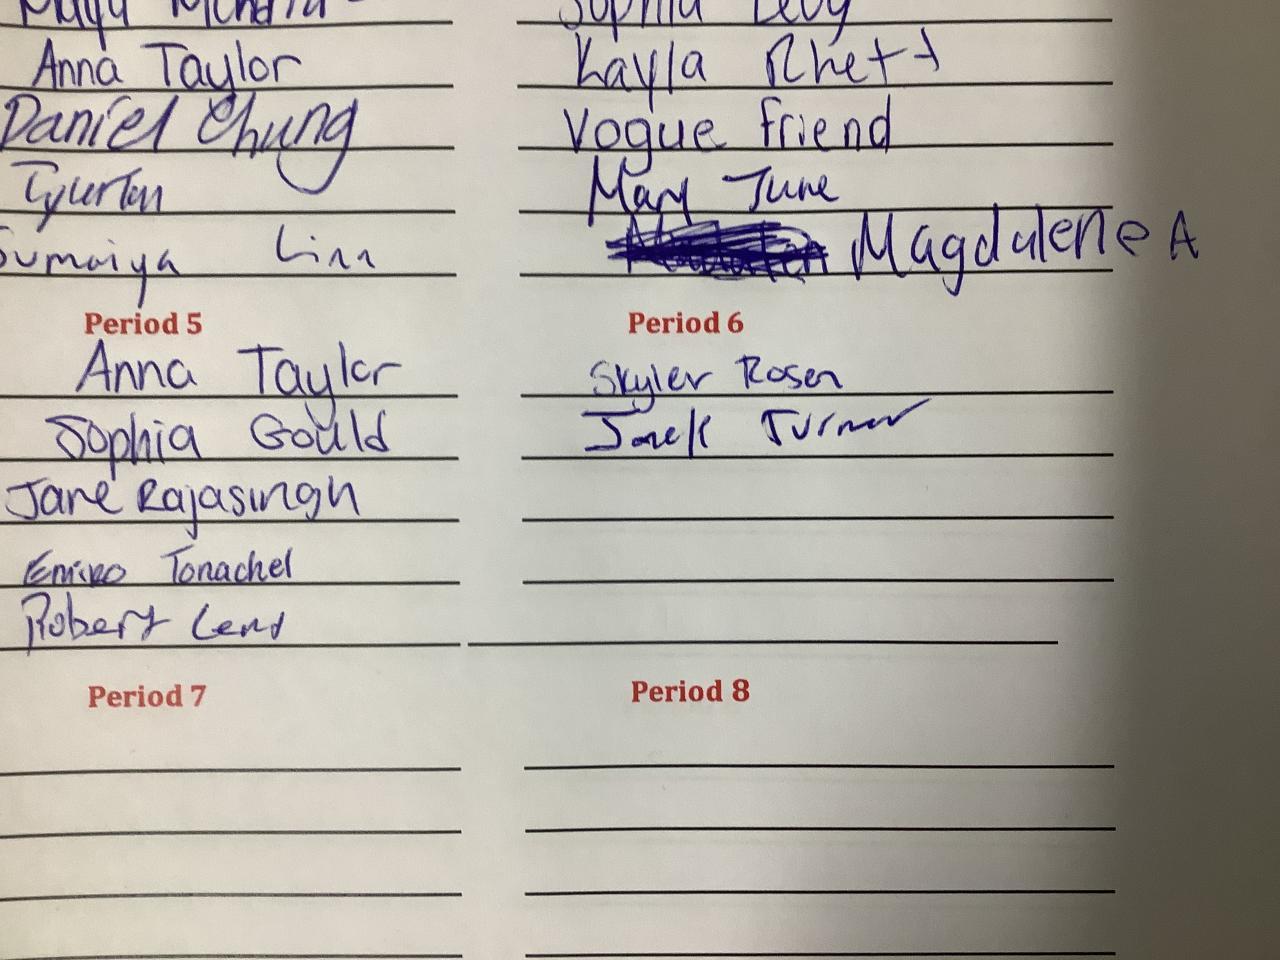 Anna Taylor
Daniel Chung
Sumaiya Linn
Sophia Levy
Kayla Rhett
Vogue Friend
Mary June
Magdalene A
Period 5
Anna Taylor
Sophia Gould
Jane Rajasingh
Tonachel
Robert
Period 6
Skyler Rosen
Jack Turner
Period 7
Period 8